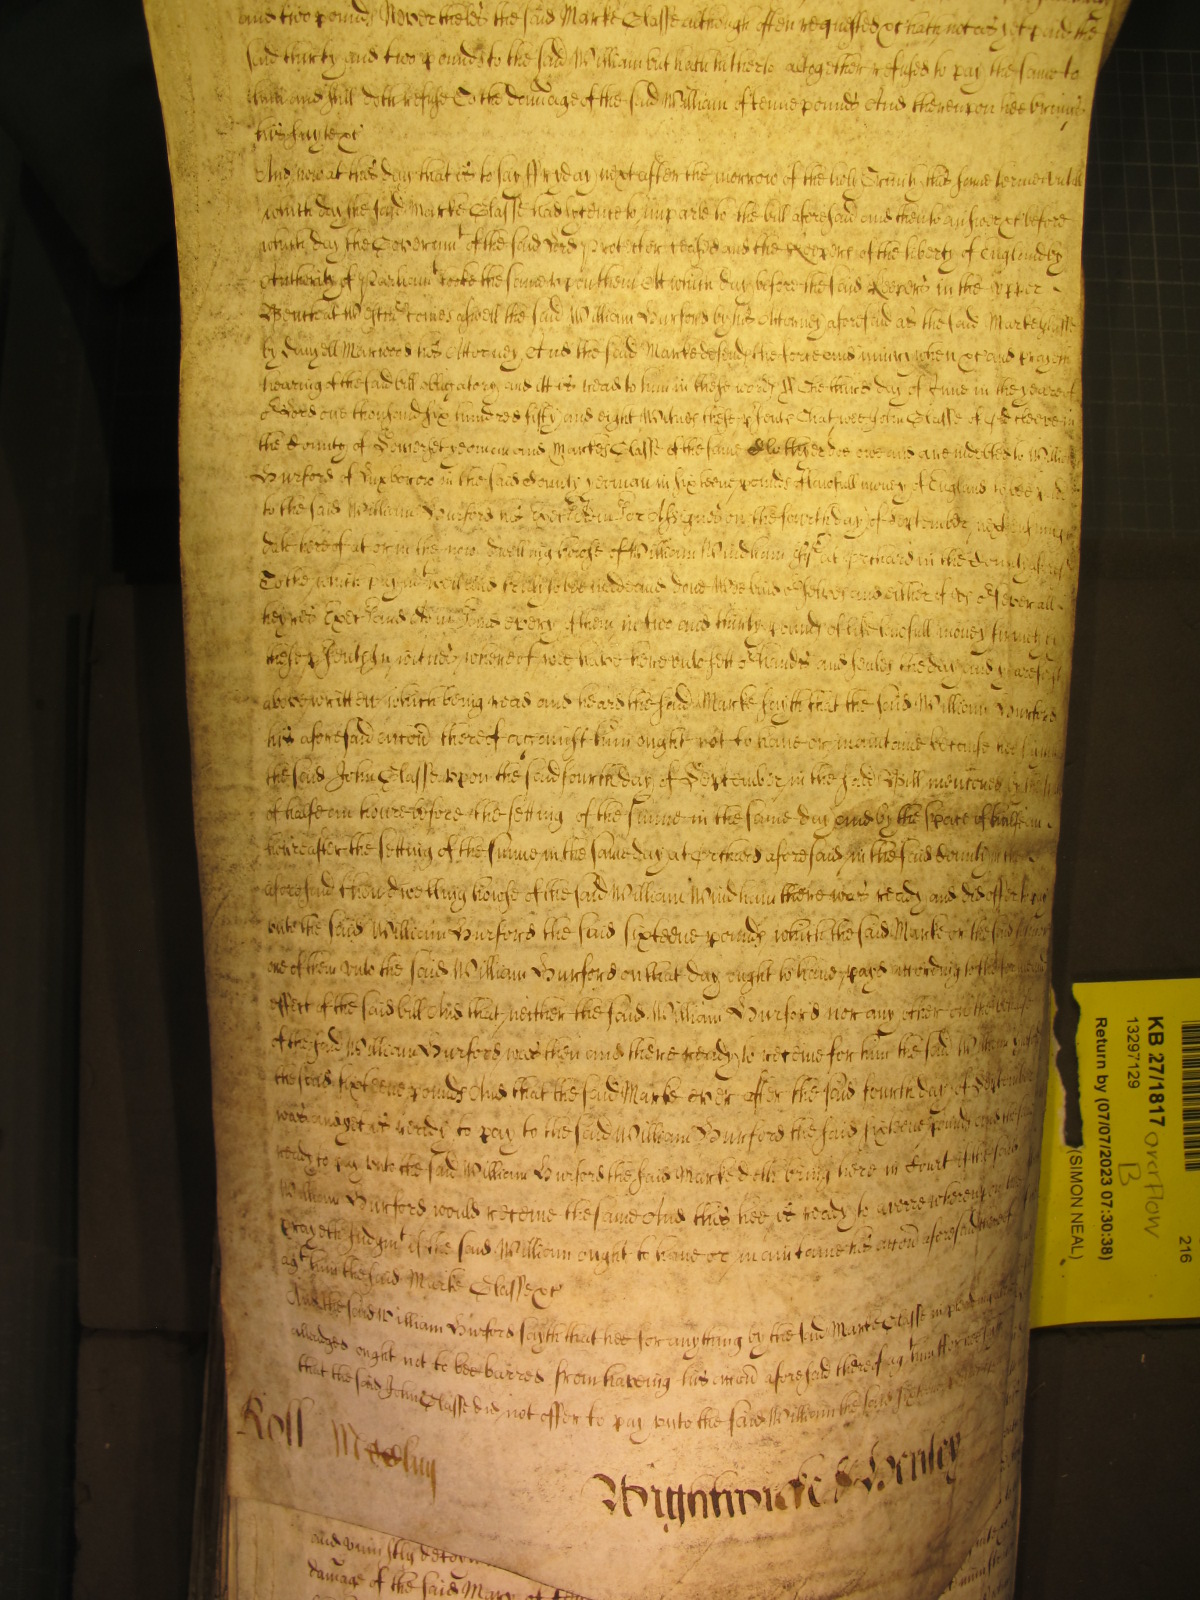 and two pounds Neverthelesse the said Marke Classe although often requested &c hath not as yet paid the
said thirty and two pounds to the said William but hath hitherto altogether refused to pay the same to
him and still doth refuse To the damage of the said William of tenne pounds And thereupon hee brings
his suyte &c
And now at this day that is to say ffryday next after the morrow of the holy Trinity this same terme untill
which day the said Marke Classe had licence to imparle to the bill aforesaid and then to answere &c before
which day the Governmt of the said lord Protector ceased and the Keepers of the liberty of England by
Authority of Parliamt tooke the same upon them Att which day before the said Keepers in the upper
Bench at Westmr comes aswell the said William Hurford by his Attorney aforesaid as the said Marke Classe
by Danyell Marwood his Attorney And the said Marke defends the force and iniury when &c and prayeth
hearing of the said bill obligatory and itt is read to him in these words The third day of June in the yeare of
Lord one thousand six hundred fifty and eight Witnes these psents That wee John Classe of
the County of Somerset yeoman and Marke Classe of the same Clothyer doe owe and are indebted to William
Hurford of Luxborow in the said County yeoman in sixteene pounds of lawfull money of England to bee paid
to the said William Hurford his Execrs Admrs or Assignes on the fourth day of September next ensuing
date hereof at or in the now dwelling house of William Windham Esqr at Orchard in the County aforesd
To the which paymt well and truly to bee made and done Wee bind orselves and either of us or severall
heyres Execrs and Admrs and every of them in two and thirty pounds of like lawfull money firmely by
these psents In witnes whereof wee have hereunto sett or hands and seales the day and yeare first
above written which being read and heard the said Marke sayth that the said William Hurford
his aforesaid accon thereof against him ought not to have or maintaine because hee sayth
the said John Classe upon the said fourth day of September in the said bill mentioned by the space
of halfe an houre before the setting of the sunne in the same day and by the space of halfe an
houre after the setting of the sunne in the same day at Orchard aforesaid in the said County in the
aforesaid then dwelling house of the said William Windham there was ready and did offer to pay
unto the said William Hurford the said sixteene pounds which the said Marke or the said John or
one of them unto the said William Hurford on that day ought to have payd according to the forme and
effect of the said bill And that neither the said William Hurford nor any other on the behalfe
of the said William Hurford was then and there ready to receive for him the said William Hurford
the said sixteene pounds And that the said Marke ever after the said fourth day of September
was and yet is ready to pay to the said William Hurford the said sixteene pounds and the same
ready to pay unto the said William Hurford the said Marke doth bring here in Court if the said
William Hurford would receive the same And this hee is ready to averre whereupon hee
prayeth Judgmt if the said William ought to have or maintaine his accon aforesaid thereof
agt him the said Marke Classe &c
And the said William Hurford sayth that hee for any thing by the said Marke Classe in pleading above
alleadged ought not to bee barred from having his accon aforesaid thereof agt him for hee sayth
that the said John Classe did not offer to pay unto the said William the said sixteene pounds
Roll
Wightwicke & Henley
and uniustly deteyn
damage of the said Mary of
KB 27/1817 overflow
B
13297129
Return by (07/07/2023 07:30:38)
(SIMON NEAL)
216